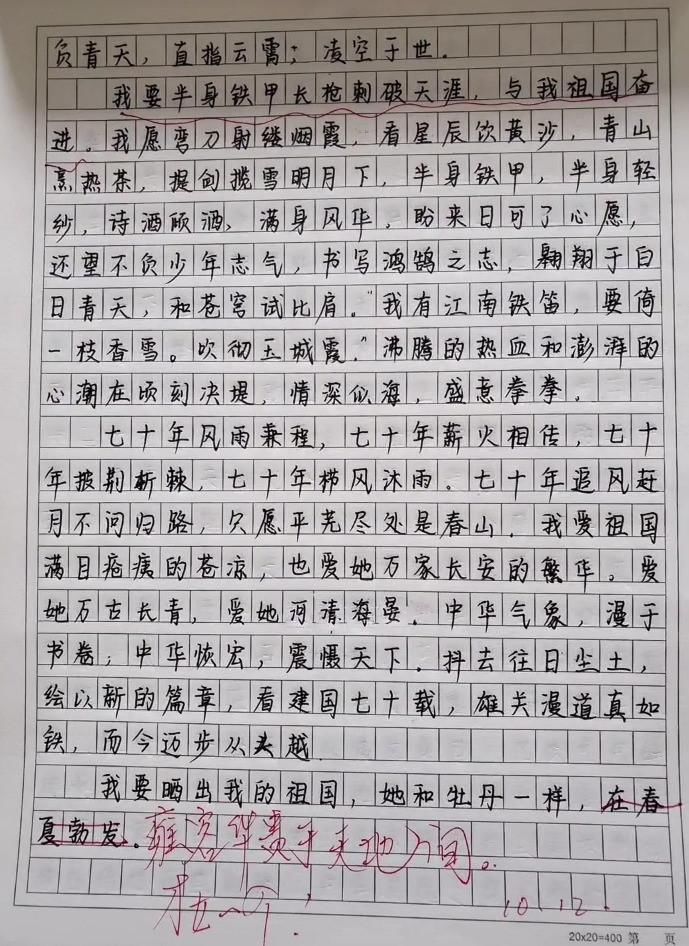 负青天，直指云霄；凌空于世．
我要半身铁甲长枪刺破天涯，与我祖国奋
进。我愿弯刀射缕烟霞，看星辰饮黄沙，青山
烹热茶，提剑揽雪明月下，半身铁甲，半身轻
纱，诗酒颀洒、满身风华，盼来日可了心愿，
还望不负少年志气，书写鸿鹄之志，翱翔于白
日青天，和苍穹试比肩。“我有江南铁笛，要倚
一枝香雪。吹彻玉城霞．”沸腾的热血和澎湃的
心潮在顷刻决堤，情深似海，盛意拳拳。
七十年风雨兼程，七十年薪火相传，七十
年披荆斩棘，七十年栉风沐雨。七十年追风赶
月不问归路，欠愿平芜尽处是春山．我爱祖国
满目疮痍的苍凉，也爱她万家长安的繁华。爱
她万古长青，爱她河清海晏．中华气象，漫于
书卷；中华恢宏，震慑天下．抖去往日尘土，
绘以新的篇章，看建国七十载，雄关漫道真如
铁，而今迈步从头越
我要晒出我的祖国，她和牡丹一样，在春
夏勃发．雍容华贵于天地间。
10.12.
20x20=400 第 页